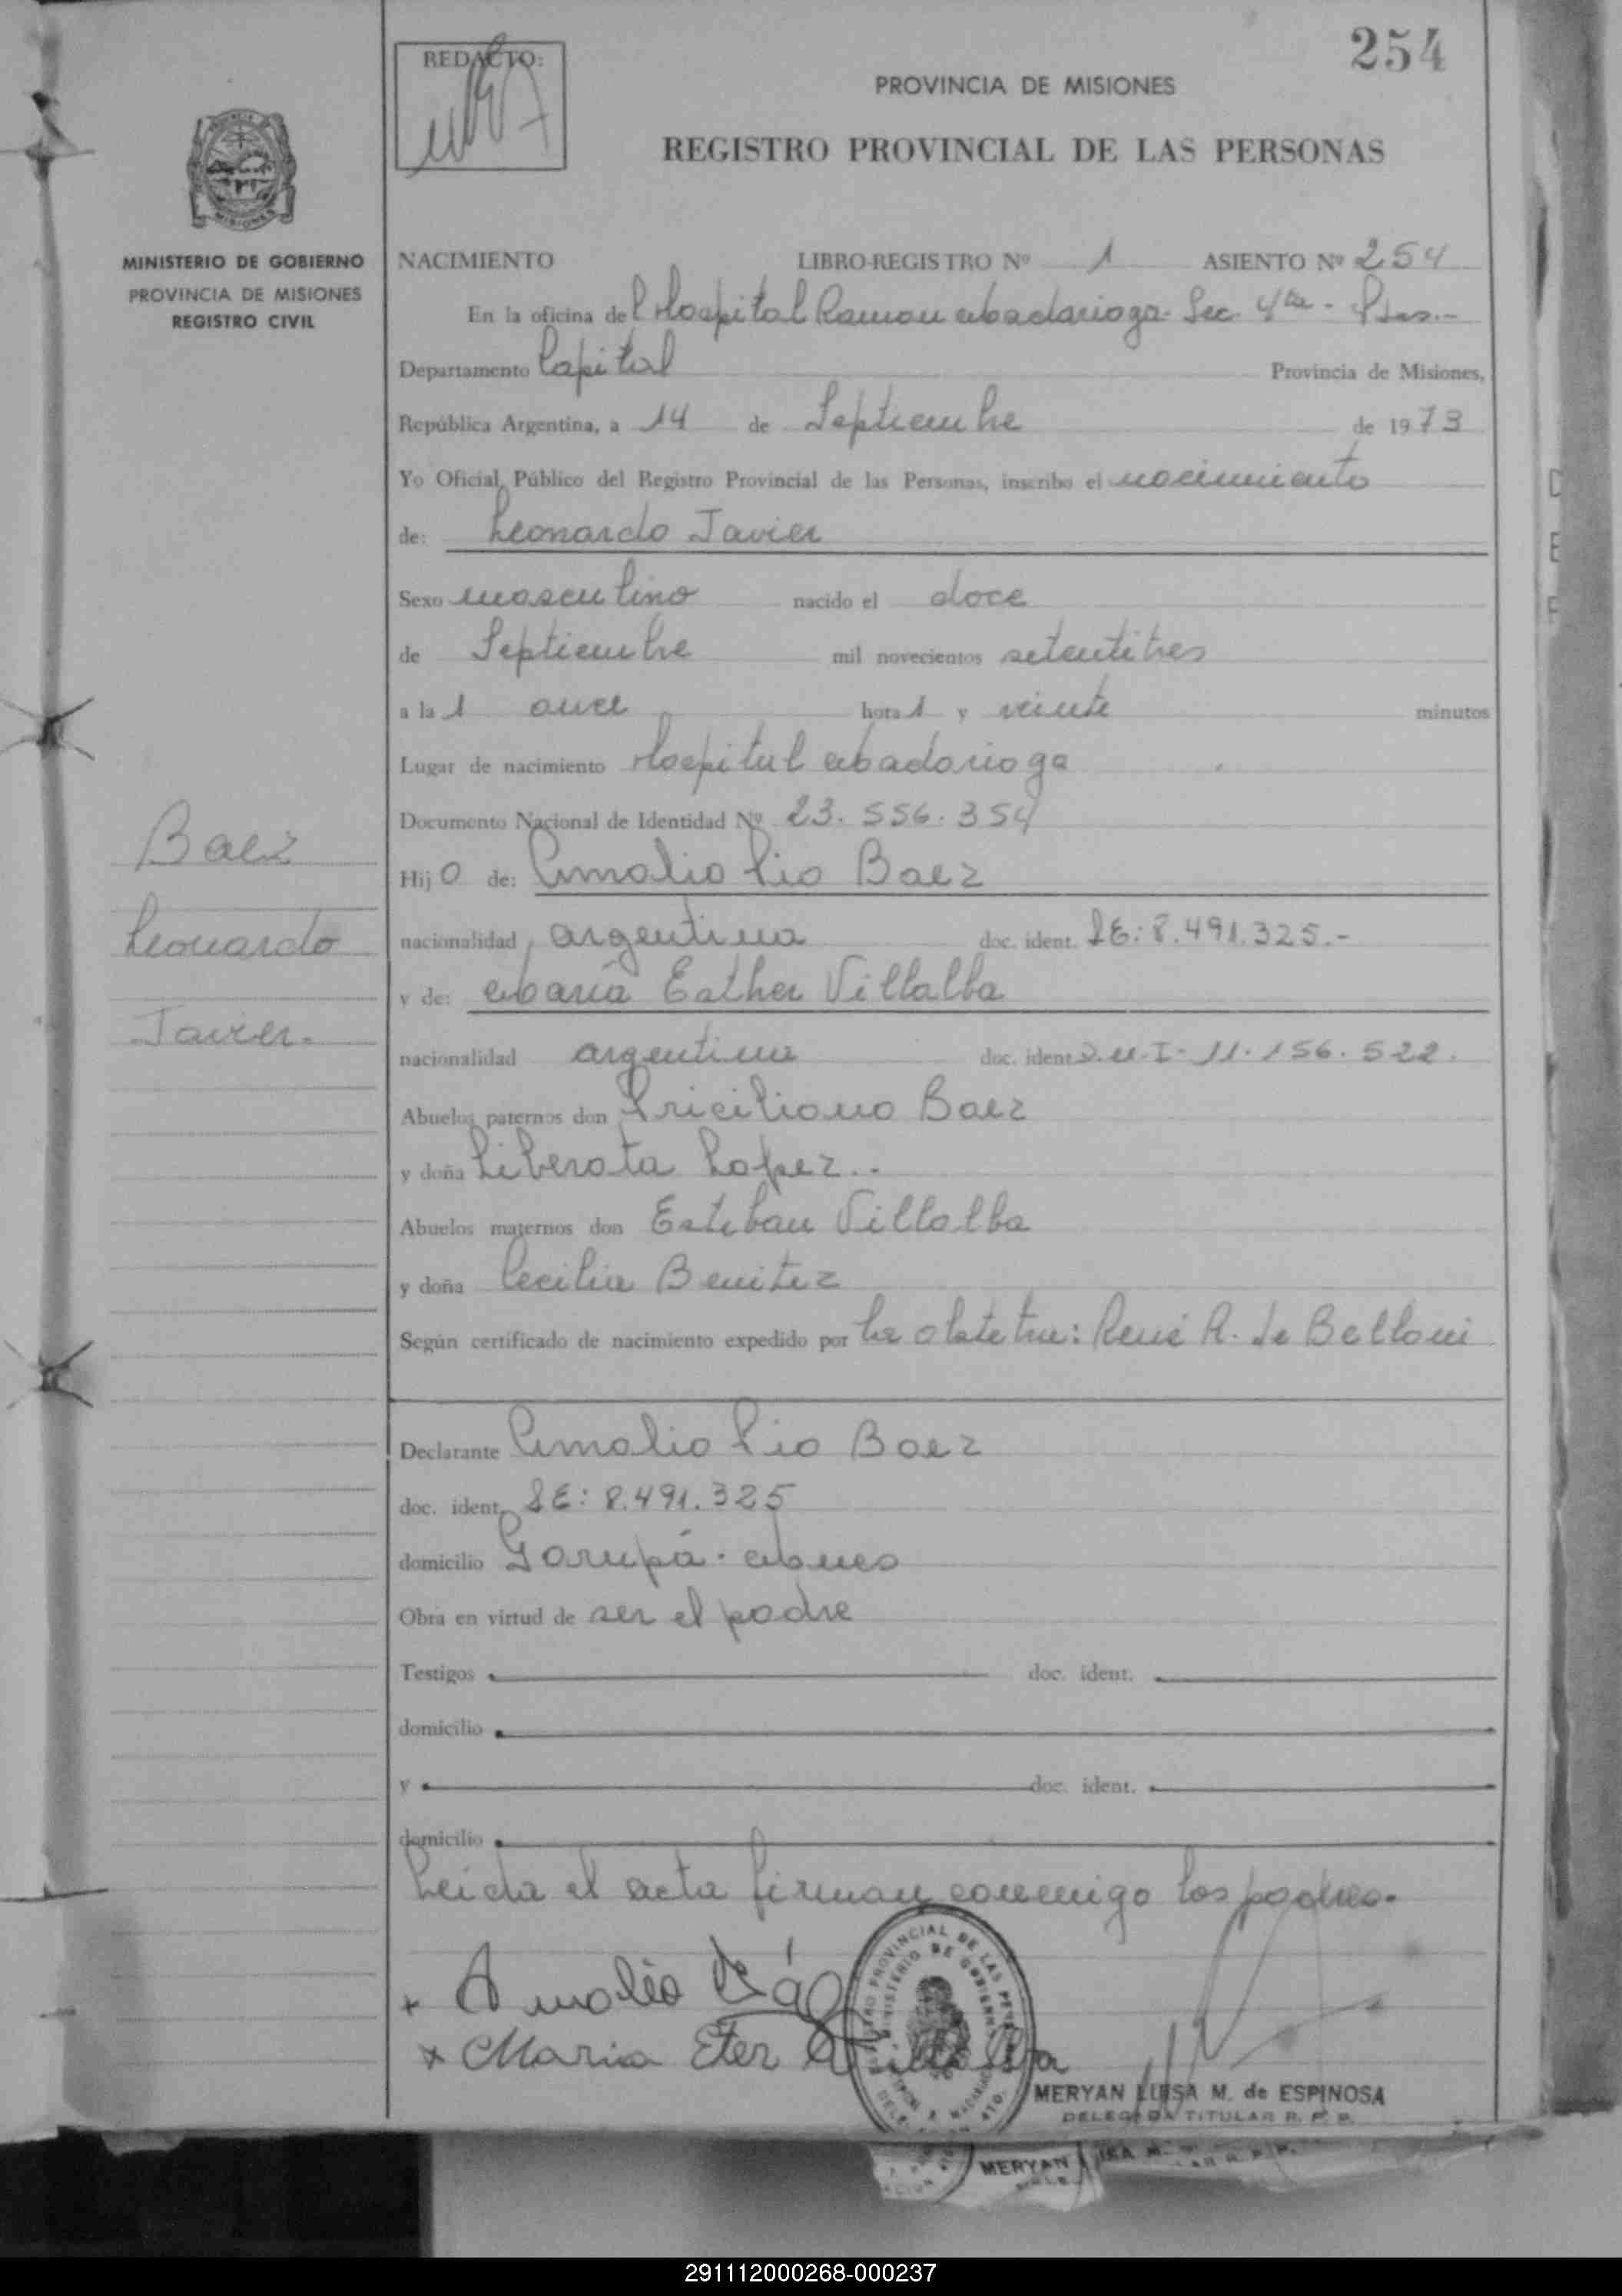 254
REDACTO:
PROVINCIA DE MISIONES
REGISTRO PROVINCIAL DE LAS PERSONAS
MINISTERIO DE GOBIERNO
PROVINCIA DE MISIONES
REGISTRO CIVIL
NACIMIENTO LIBRO-REGISTRO Nº 1 ASIENTO Nº 254
En la oficina del Hospital Ramon Madariaga - Sec. 4ta - Pdas.-
Departamento Capital Provincia de Misiones,
República Argentina, a 14 de Septiembre de 1973
Yo Oficial Público del Registro Provincial de las Personas, inscribo el nacimiento
de: Leonardo Javier
Sexo masculino nacido el doce
de Septiembre mil novecientos setentitres
a las once horas y veinte minutos
Lugar de nacimiento Hospital Madariaga
Documento Nacional de Identidad Nº 23.556.354
Hijo de: Amalio Pio Baez
nacionalidad argentina doc. ident. LE: 8.491.325.-
y de: María Esther Villalba
nacionalidad argentina doc. ident D.N.I- 11.156.522.
Abuelos paternos don Priciliano Baez
y doña Liberata Lopez.-
Abuelos maternos don Esteban Villalba
y doña Cecilia Benitez
Según certificado de nacimiento expedido por La obstetra: René R. de Belloni
Baez
Leonardo
Javier.
Declarante Amalio Pio Baez
doc. ident. LE: 8.491.325
domicilio Garupá - Mnes
Obra en virtud de ser el padre
Testigos doc. ident.
domicilio
y doc. ident.
domicilio
Leida el acta firman conmigo los padres.
+ Amalio Báez
x Maria Eter Villalba
PROVINCIAL DE LAS
MINISTERIO DE GOBIERNO
MERYAN LUISA M. de ESPINOSA
DELEGADA TITULAR R. P. P.
MERYAN
291112000268-000237